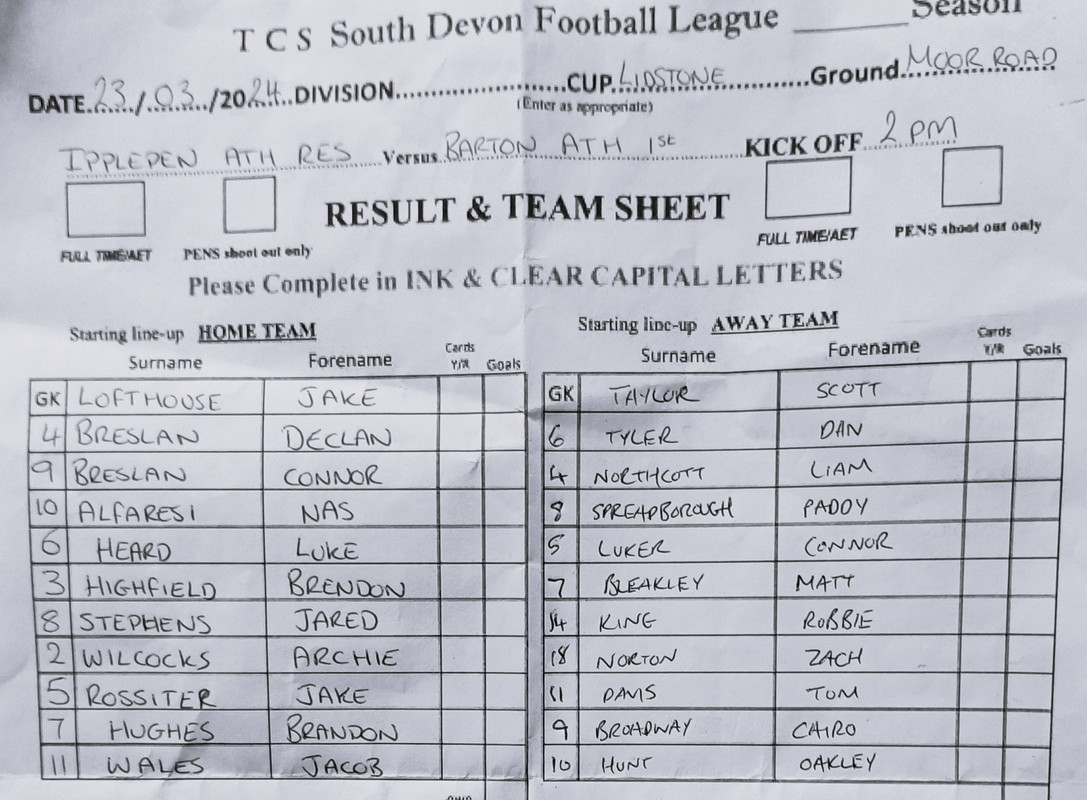 T C S South Devon Football League ________ Season
DATE 23/.03../2024..DIVISION..........................CUP LIDSTONE.............Ground MOOR ROAD
(Enter as appropriate)
IPPLEPEN ATH RES Versus BARTON ATH 1st KICK OFF 2 PM
RESULT & TEAM SHEET
FULL TIME/AET PENS shoot out only FULL TIME/AET PENS shoot out only
Please Complete in INK & CLEAR CAPITAL LETTERS
Starting line-up HOME TEAM
Surname Forename Cards Y/R Goals
GK LOFTHOUSE JAKE
4 BRESLAN DECLAN
9 BRESLAN CONNOR
10 ALFARESI NAS
6 HEARD LUKE
3 HIGHFIELD BRENDON
8 STEPHENS JARED
2 WILCOCKS ARCHIE
5 ROSSITER JAKE
7 HUGHES BRANDON
11 WALES JACOB
Starting line-up AWAY TEAM
Surname Forename Cards Y/R Goals
GK TAYLOR SCOTT
6 TYLER DAN
4 NORTHCOTT LIAM
8 SPREADBOROUGH PADDY
5 LUKER CONNOR
7 BLEAKLEY MATT
14 KING ROBBIE
18 NORTON ZACH
11 DAVIS TOM
9 BROADWAY CAIRO
10 HUNT OAKLEY